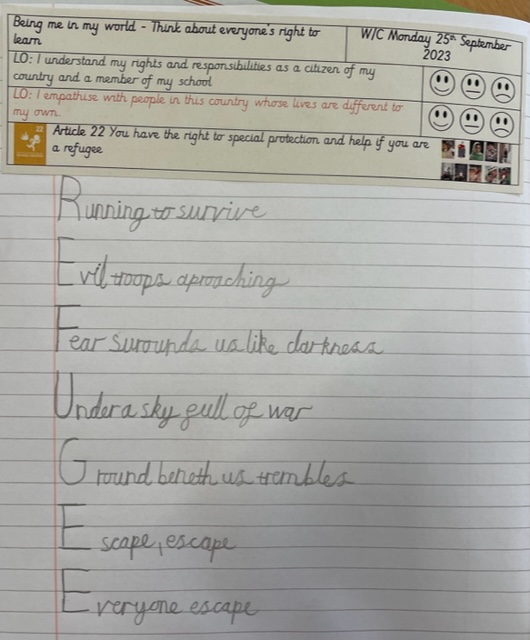 Being me in my world - Think about everyone's right to
learn
W/C Monday 25th September
2023
LO: I understand my rights and responsibilities as a citizen of my
country and a member of my school
LO: I empathise with people in this country whose lives are different to
my own.
22
Article 22 You have the right to special protection and help if you are
a refugee
Running to survive
Evil troops aproaching
Fear surounds us like darkness
Under a sky full of war
Ground beneth us trembles
Escape, escape
Everyone escape